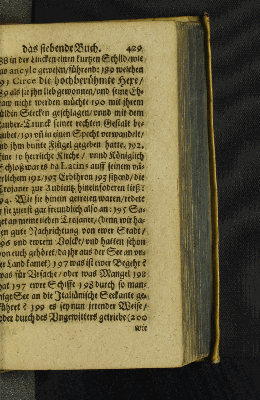 das siebende Buch. 429
88 in der Lincken einen kurtzen Schild/wie
ancyle gewesen/führend: 189 welchen
91 Circe die hochberühmte Hexe/
89 als sie ihn lieb gewonnen/ und seine Eh-
raw nicht werden müchte 190 mit ihrem
güldin Stecken geschlagen/ vnnd mit dem
Zauber-Trunck seiner rechten Gestalt be-
raubet/191 vñ in einen Specht verwandelt/
und ihm bunte Flügel gegeben hatte. 192.
Eine so herrliche Kirche / vnnd Königlich
Schloß war es da Latinus auff seinem vä-
terlichem 192/193 Erbthron 193 sitzend/die
Trojaner zur Audientz hineinfoderen ließ:
94. Wie sie hinein getreten waren/redete
er sie zuerst gar freundlich also an: 195 Sa-
get an meine lieben Trojaner/(denn wir ha-
ben gute Nachrichtung von ewer Stadt/
196 und ewrem Volcke/ vnd hatten schon
von euch gehöret/da ihr aus der See an vn-
ser Land kamet) 197 was ist ewr Begehr?
was für Vrsache/ oder was Mangel 198
hat 197 ewre Schiffe 198 durch so man-
nige See an die Italiänische Seekante ge-
führet? 199 es sey nun irrender Weise/
oder durch des Ungewitters getriebe (200
wie